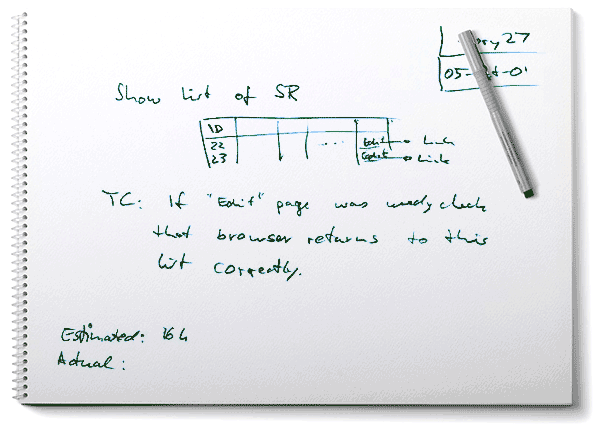 27
05-
Show list of SR
ID
22 ... Edit Link
23 Edit Link
TC: If "Edit" page was used, check
that browser returns to this
list correctly.
Estimated: 16h
Actual: